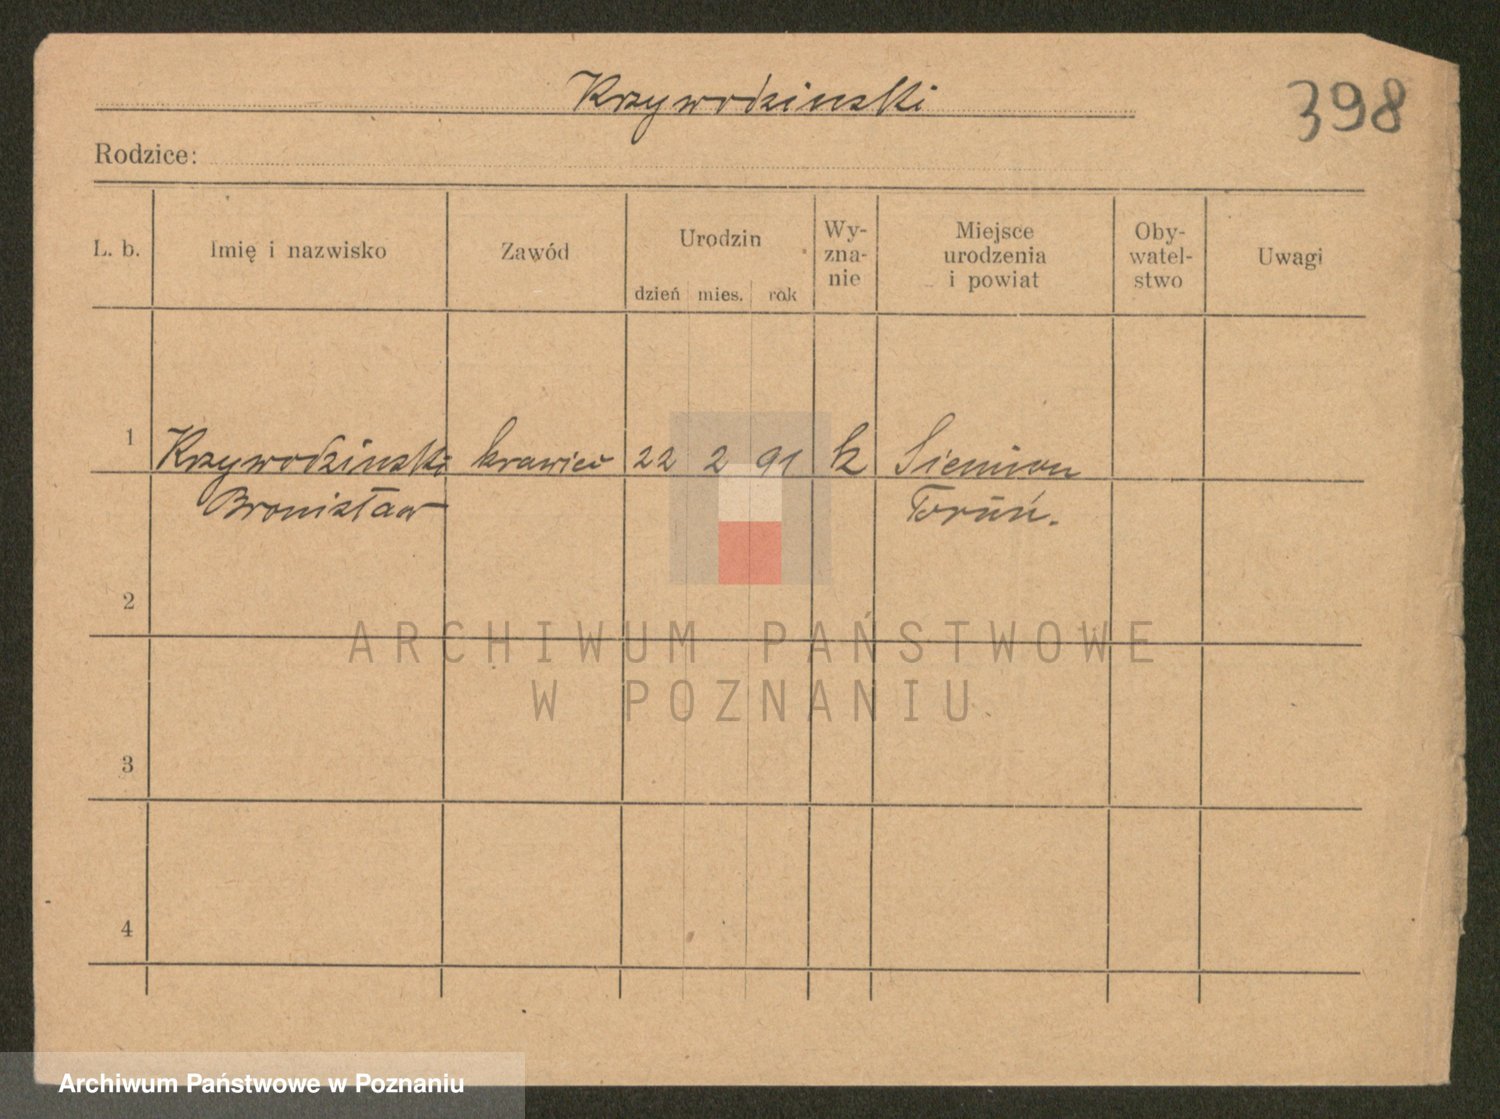 Krzywodzinski
398
Rodzice:
L. b.
Imię i nazwisko
Zawód
Urodzin
dzień mies. rok
Wy-
zna-
nie
Miejsce
urodzenia
i powiat
Oby-
watel-
stwo
Uwagi
1 Krzywodzinski krawiec 22 2 91 k Siemion
Bronisław Toruń.
2
ARCHIWUM PAŃSTWOWE
W POZNANIU
3
4
Archiwum Państwowe w Poznaniu